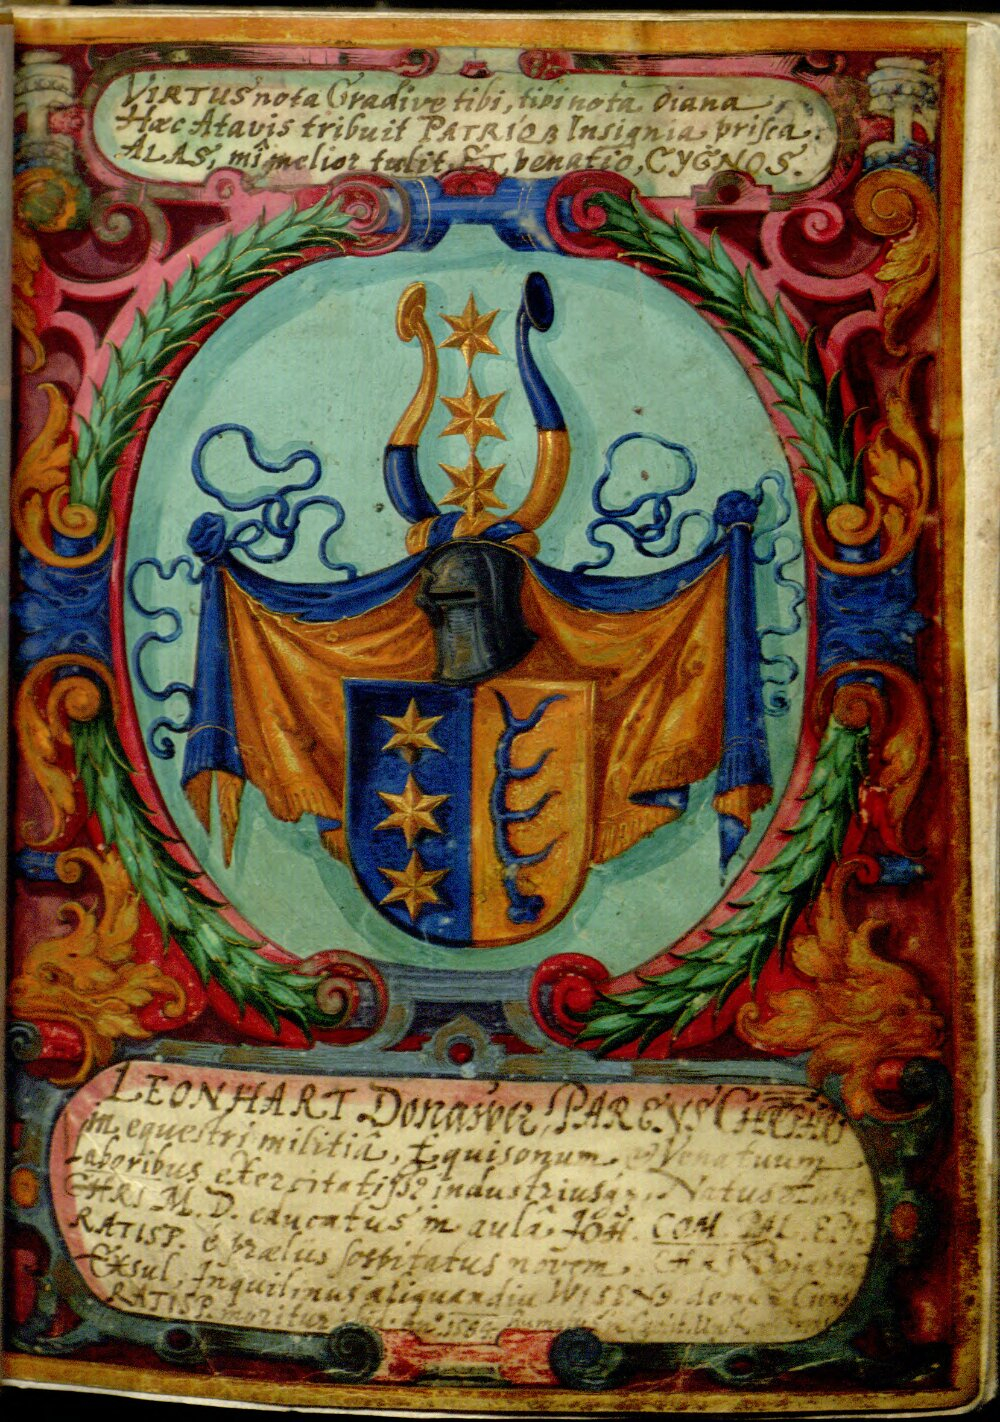 VIRTUS nota Gradive tibi, tibi nota Diana
Hæc Atavis tribuit PATRIOR Insignia prisca
ALAS, mî melior tulit, ET, venatio, CYGNOS.
LEONHART Donawer, PARENS
in equestri militiâ, Equisonum, Venatuum
Laboribus exercitatiss9 industriusq3. Natus
CHRI M. D. educatus in aulâ. IOH. COM. PAL. EPIS
RATISP. é prælius sospitatus novem.
Exsul, Inquilinus aliquandiu WISENS. demum
RATISP. moritur